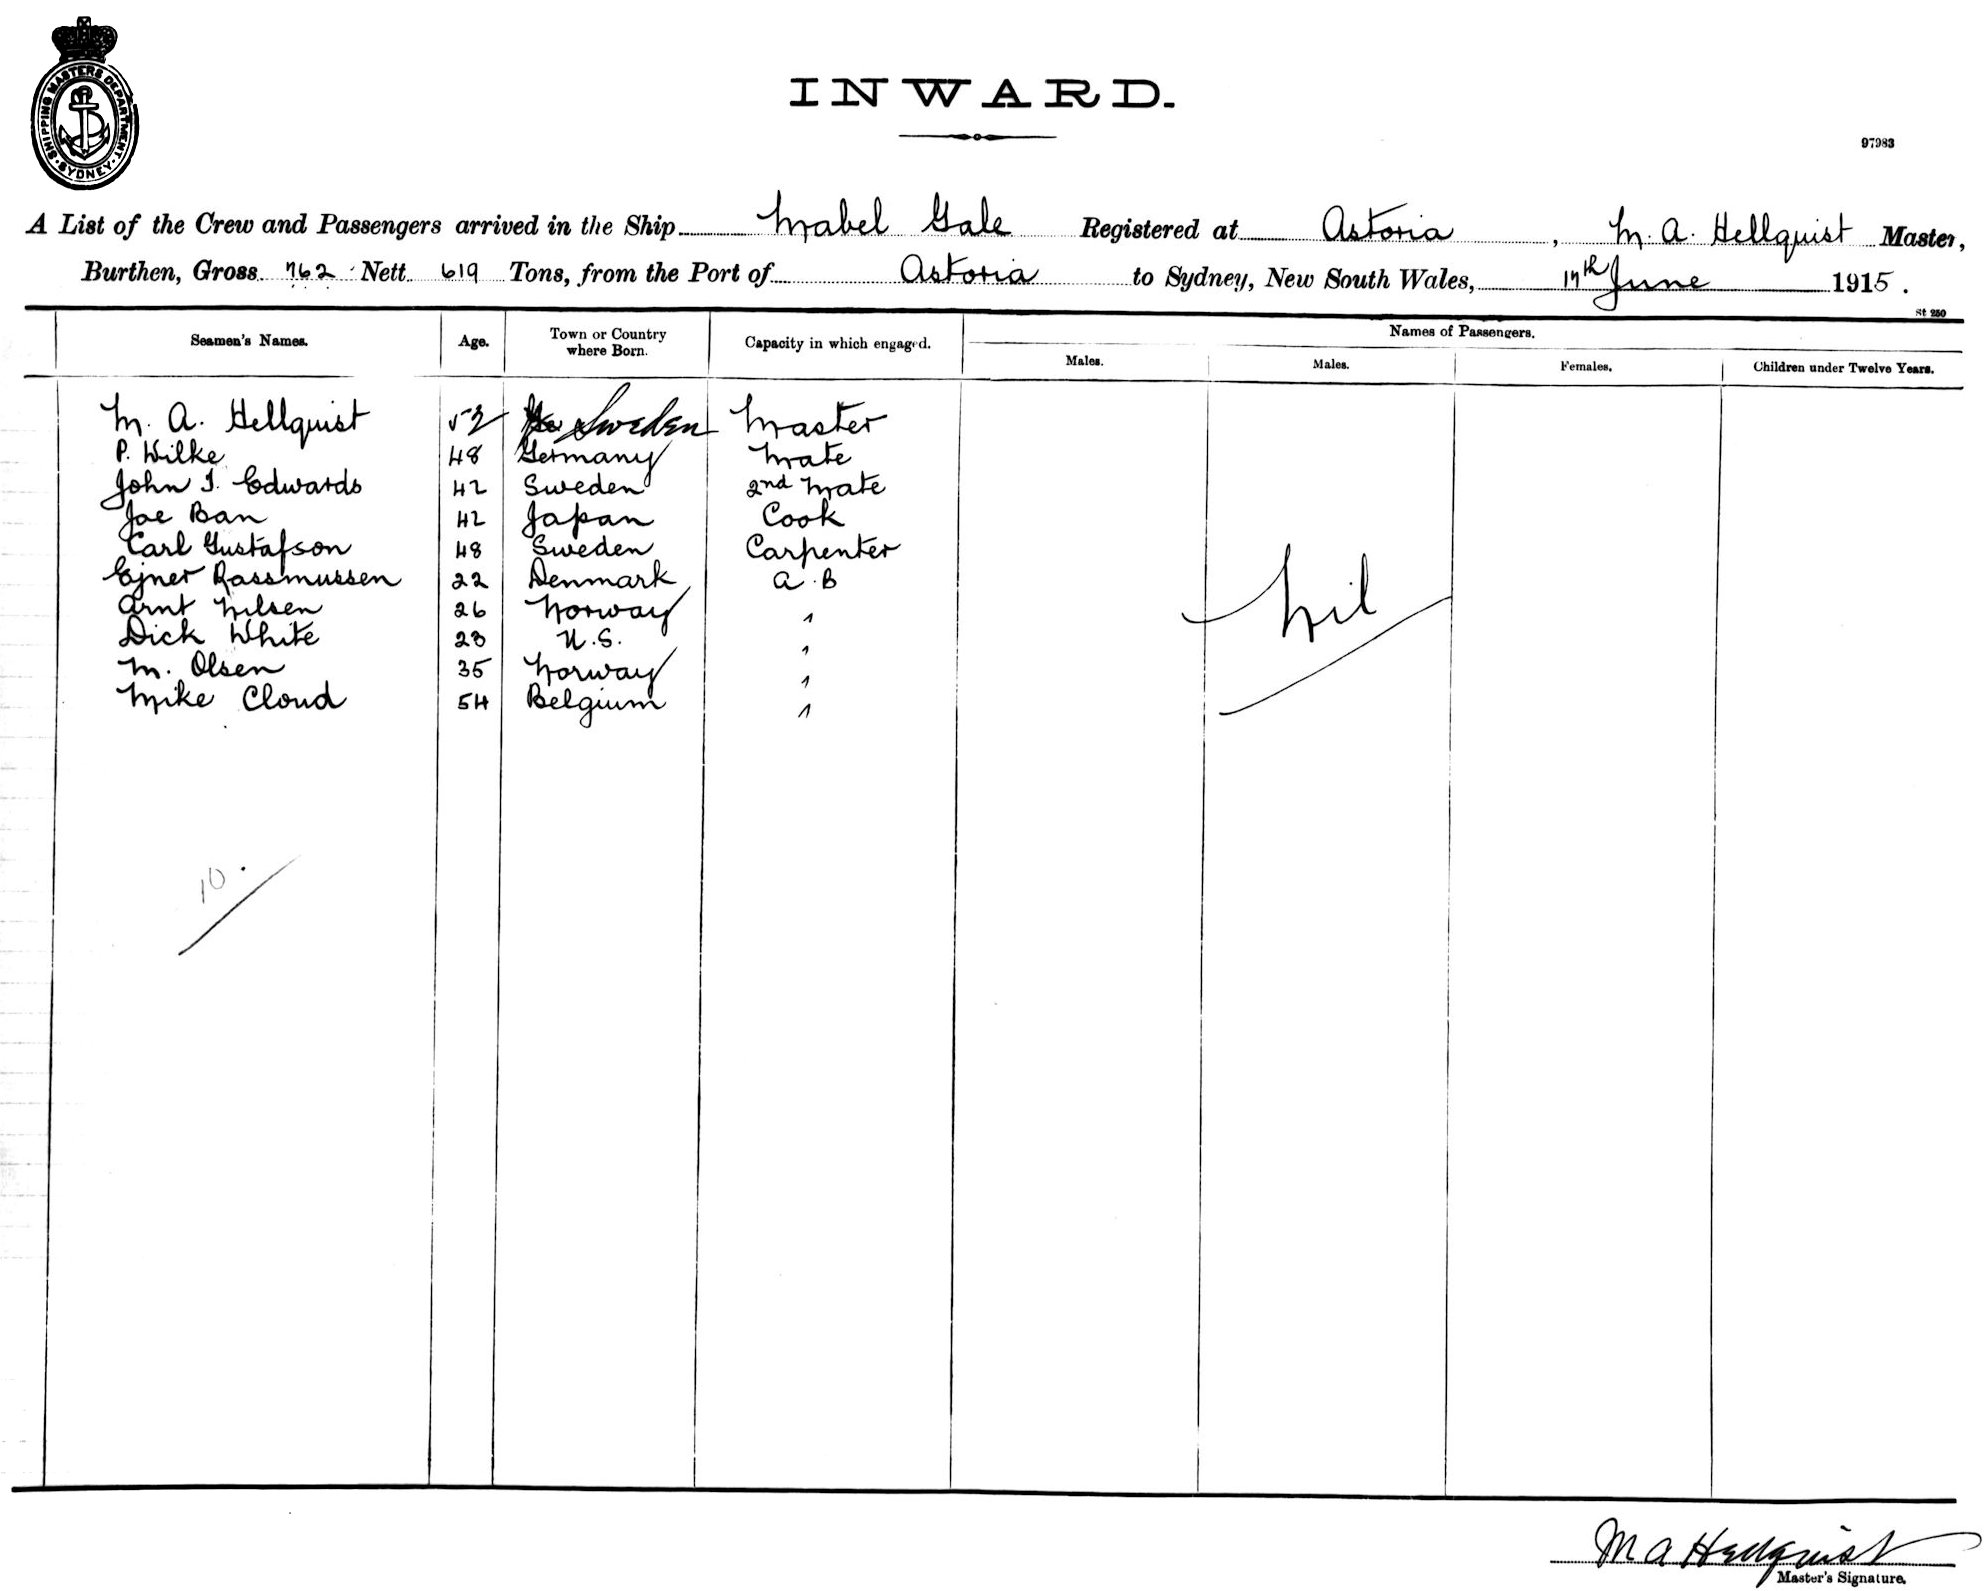 SHIPPING MASTERS DEPARTMENT. SYDNEY
INWARD.
97983
A List of the Crew and Passengers arrived in the Ship Mabel Gale Registered at Astoria, M. A. Hellquist Master,
Burthen, Gross 762 Nett 619 Tons, from the Port of Astoria to Sydney, New South Wales, 17th June 1915.
St 250
Seamen's Names. Age. Town or Country where Born. Capacity in which engaged. Names of Passengers.
Males. Males. Females. Children under Twelve Years.
M. A. Hellquist 52 Sweden Master
P. Wilke 48 Germany Mate
John I. Edwards 42 Sweden 2nd Mate
Joe Ban 42 Japan Cook
Carl Gustafson 48 Sweden Carpenter
Ejner Rassmussen 22 Denmark A.B
Arnt Nilsen 26 Norway "
Nil
Dick White 23 U.S. "
M. Olsen 35 Norway "
Mike Cloud 54 Belgium "
10.
M A Hellquist
Master's Signature.